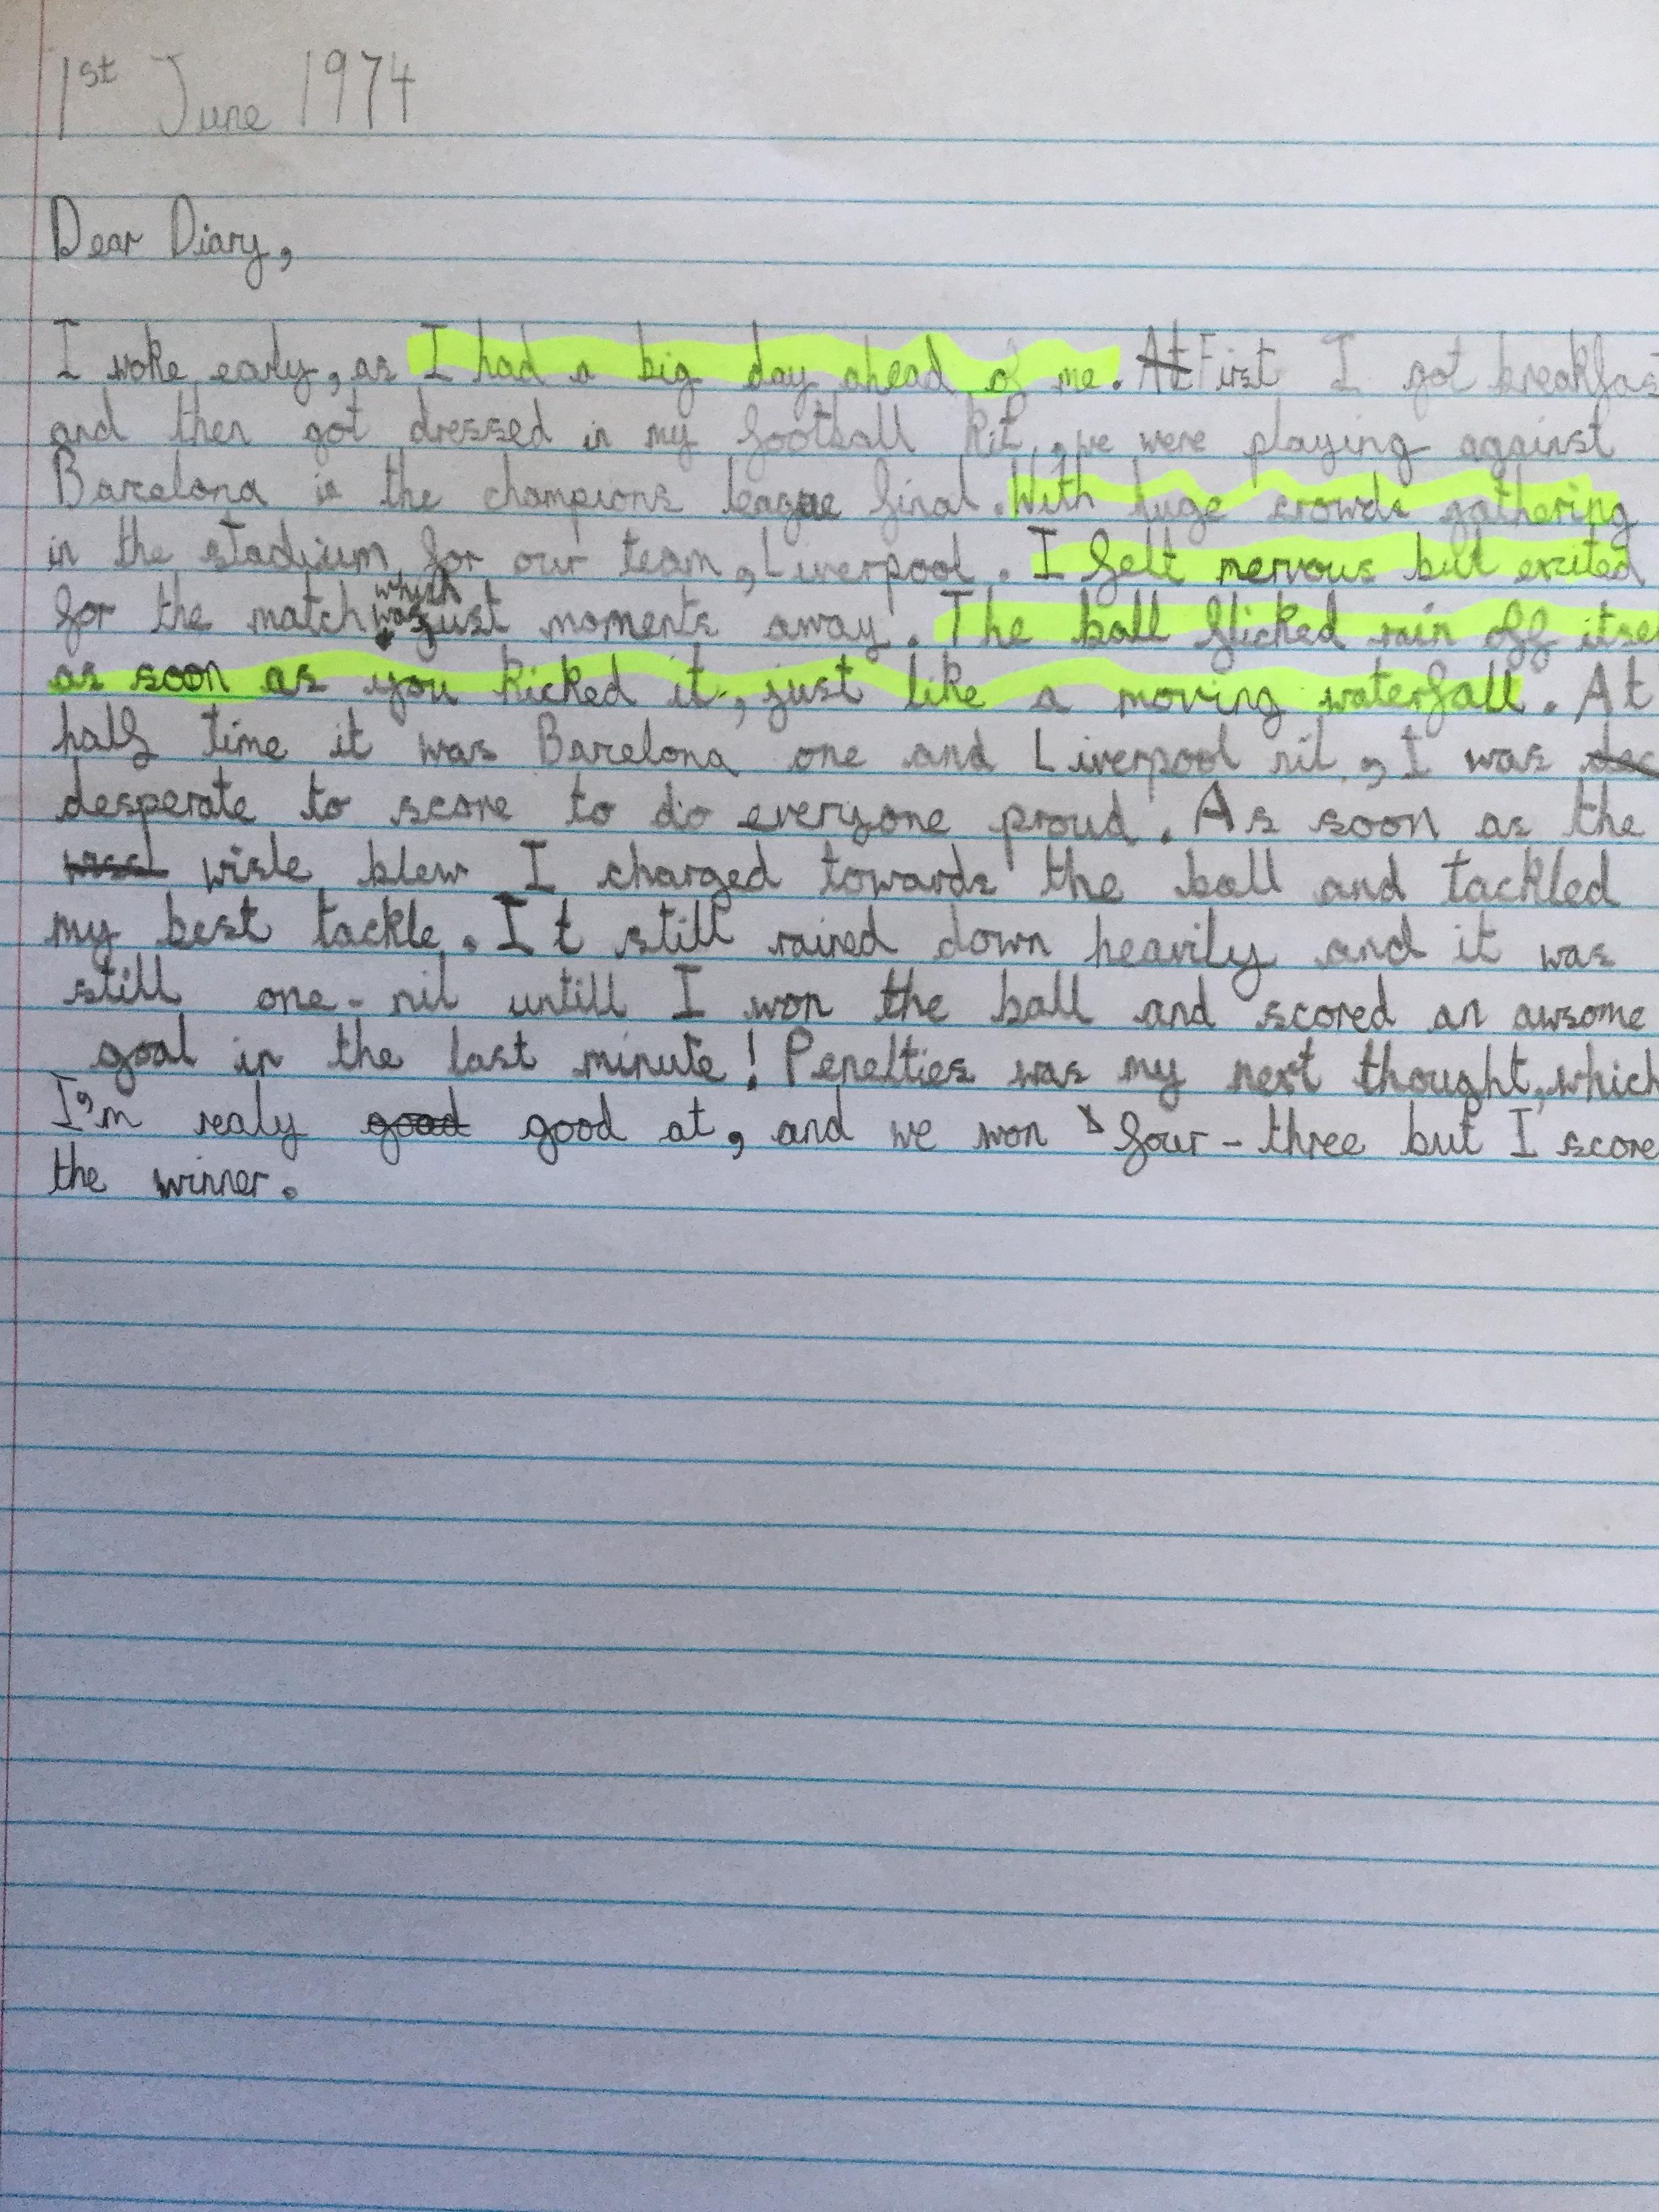 1st June 1974
Dear Diary,
I woke early, as I had a big day ahead of me. At First I got breakfas
and then got dressed in my football kit, we were playing against
Barcelona in the champions league final. With huge crowds gathering
in the stadium for our team, Liverpool. I felt nervous but excited
for the match which was just moments away. The ball flicked rain off itse
as soon as you kicked it, just like a moving waterfall. At
half time it was Barcelona one and Liverpool nil, I was dec
desperate to score to do everyone proud. As soon as the
wisle blew I charged towards the ball and tackled
my best tackle. It still rained down heavily and it was
still one-nil untill I won the ball and scored an awsome
goal in the last minute! Penelties was my next thought, which
I'm realy good good at, and we won four-three but I score
the winner.